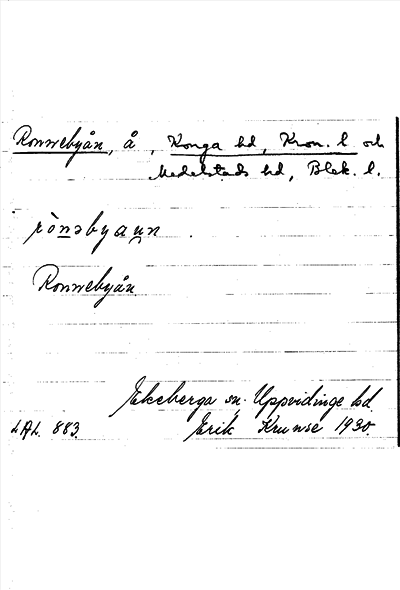 Ronnebyån, å, Konga hd, Kron. l och
Medelstads hd, Blek. l.
rònəbyaun
Ronnebyån
Ekeberga sn. Uppvidinge hd.
LAL. 883. Erik Krunse 1930.